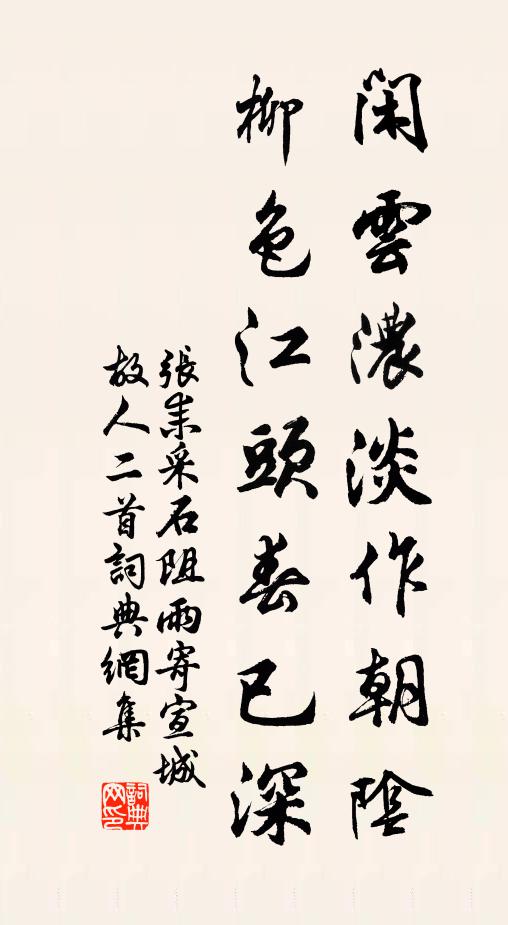 閑雲濃淡作朝陰
柳色江頭春已深
張耒采石阻雨寄宣城
故人二首詞典網集
詞典网印